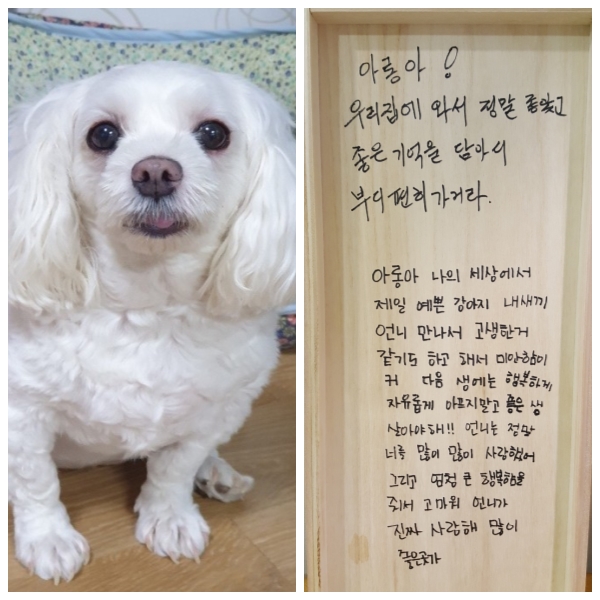 아롱아!
우리집에 와서 정말 좋았고
좋은 기억을 담아서
부디 편히가거라.
아롱아 나의 세상에서
제일 예쁜 강아지 내새끼
언니 만나서 고생한거
같기도 하고 해서 미안함이
커 다음 생에는 행복하게
자유롭게 아프지말고 좋은 생
살아야해!! 언니는 정말
너를 많이 많이 사랑했어
그리고 엄청 큰 행복함을
줘서 고마워 언니가
진짜 사랑해 많이
좋은곳가